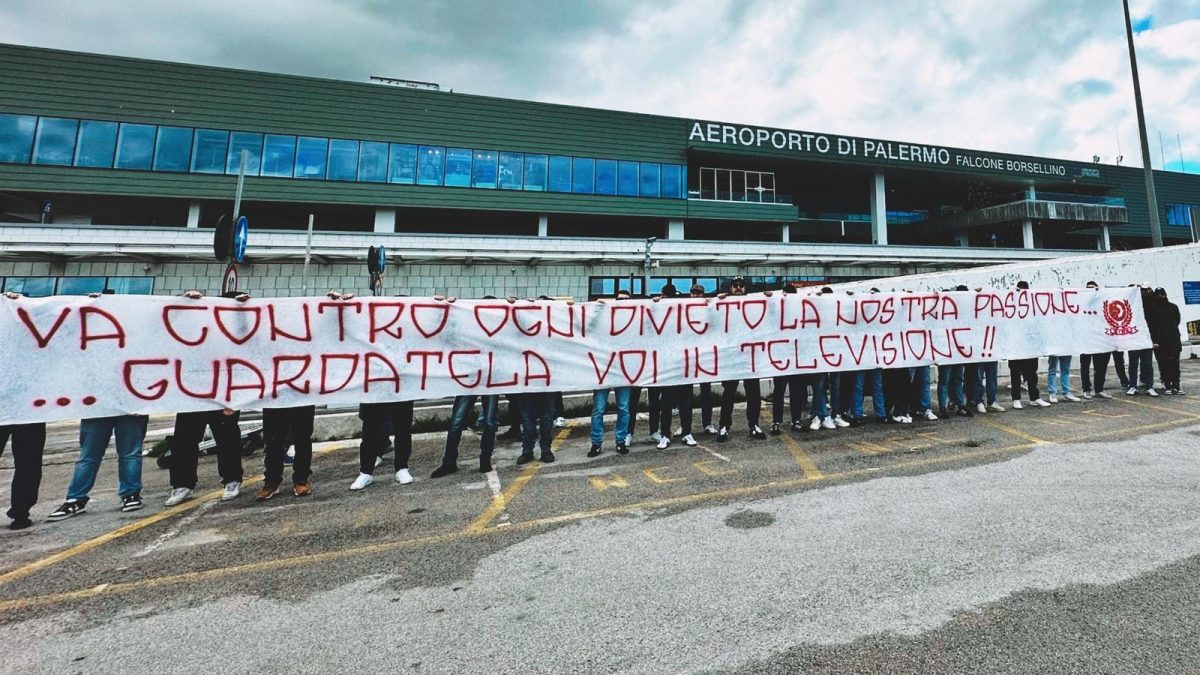 AEROPORTO DI PALERMO FALCONE BORSELLINO
VA CONTRO OGNI DIVIETO LA NOSTRA PASSIONE...
... GUARDATELA VOI IN TELEVISIONE!!